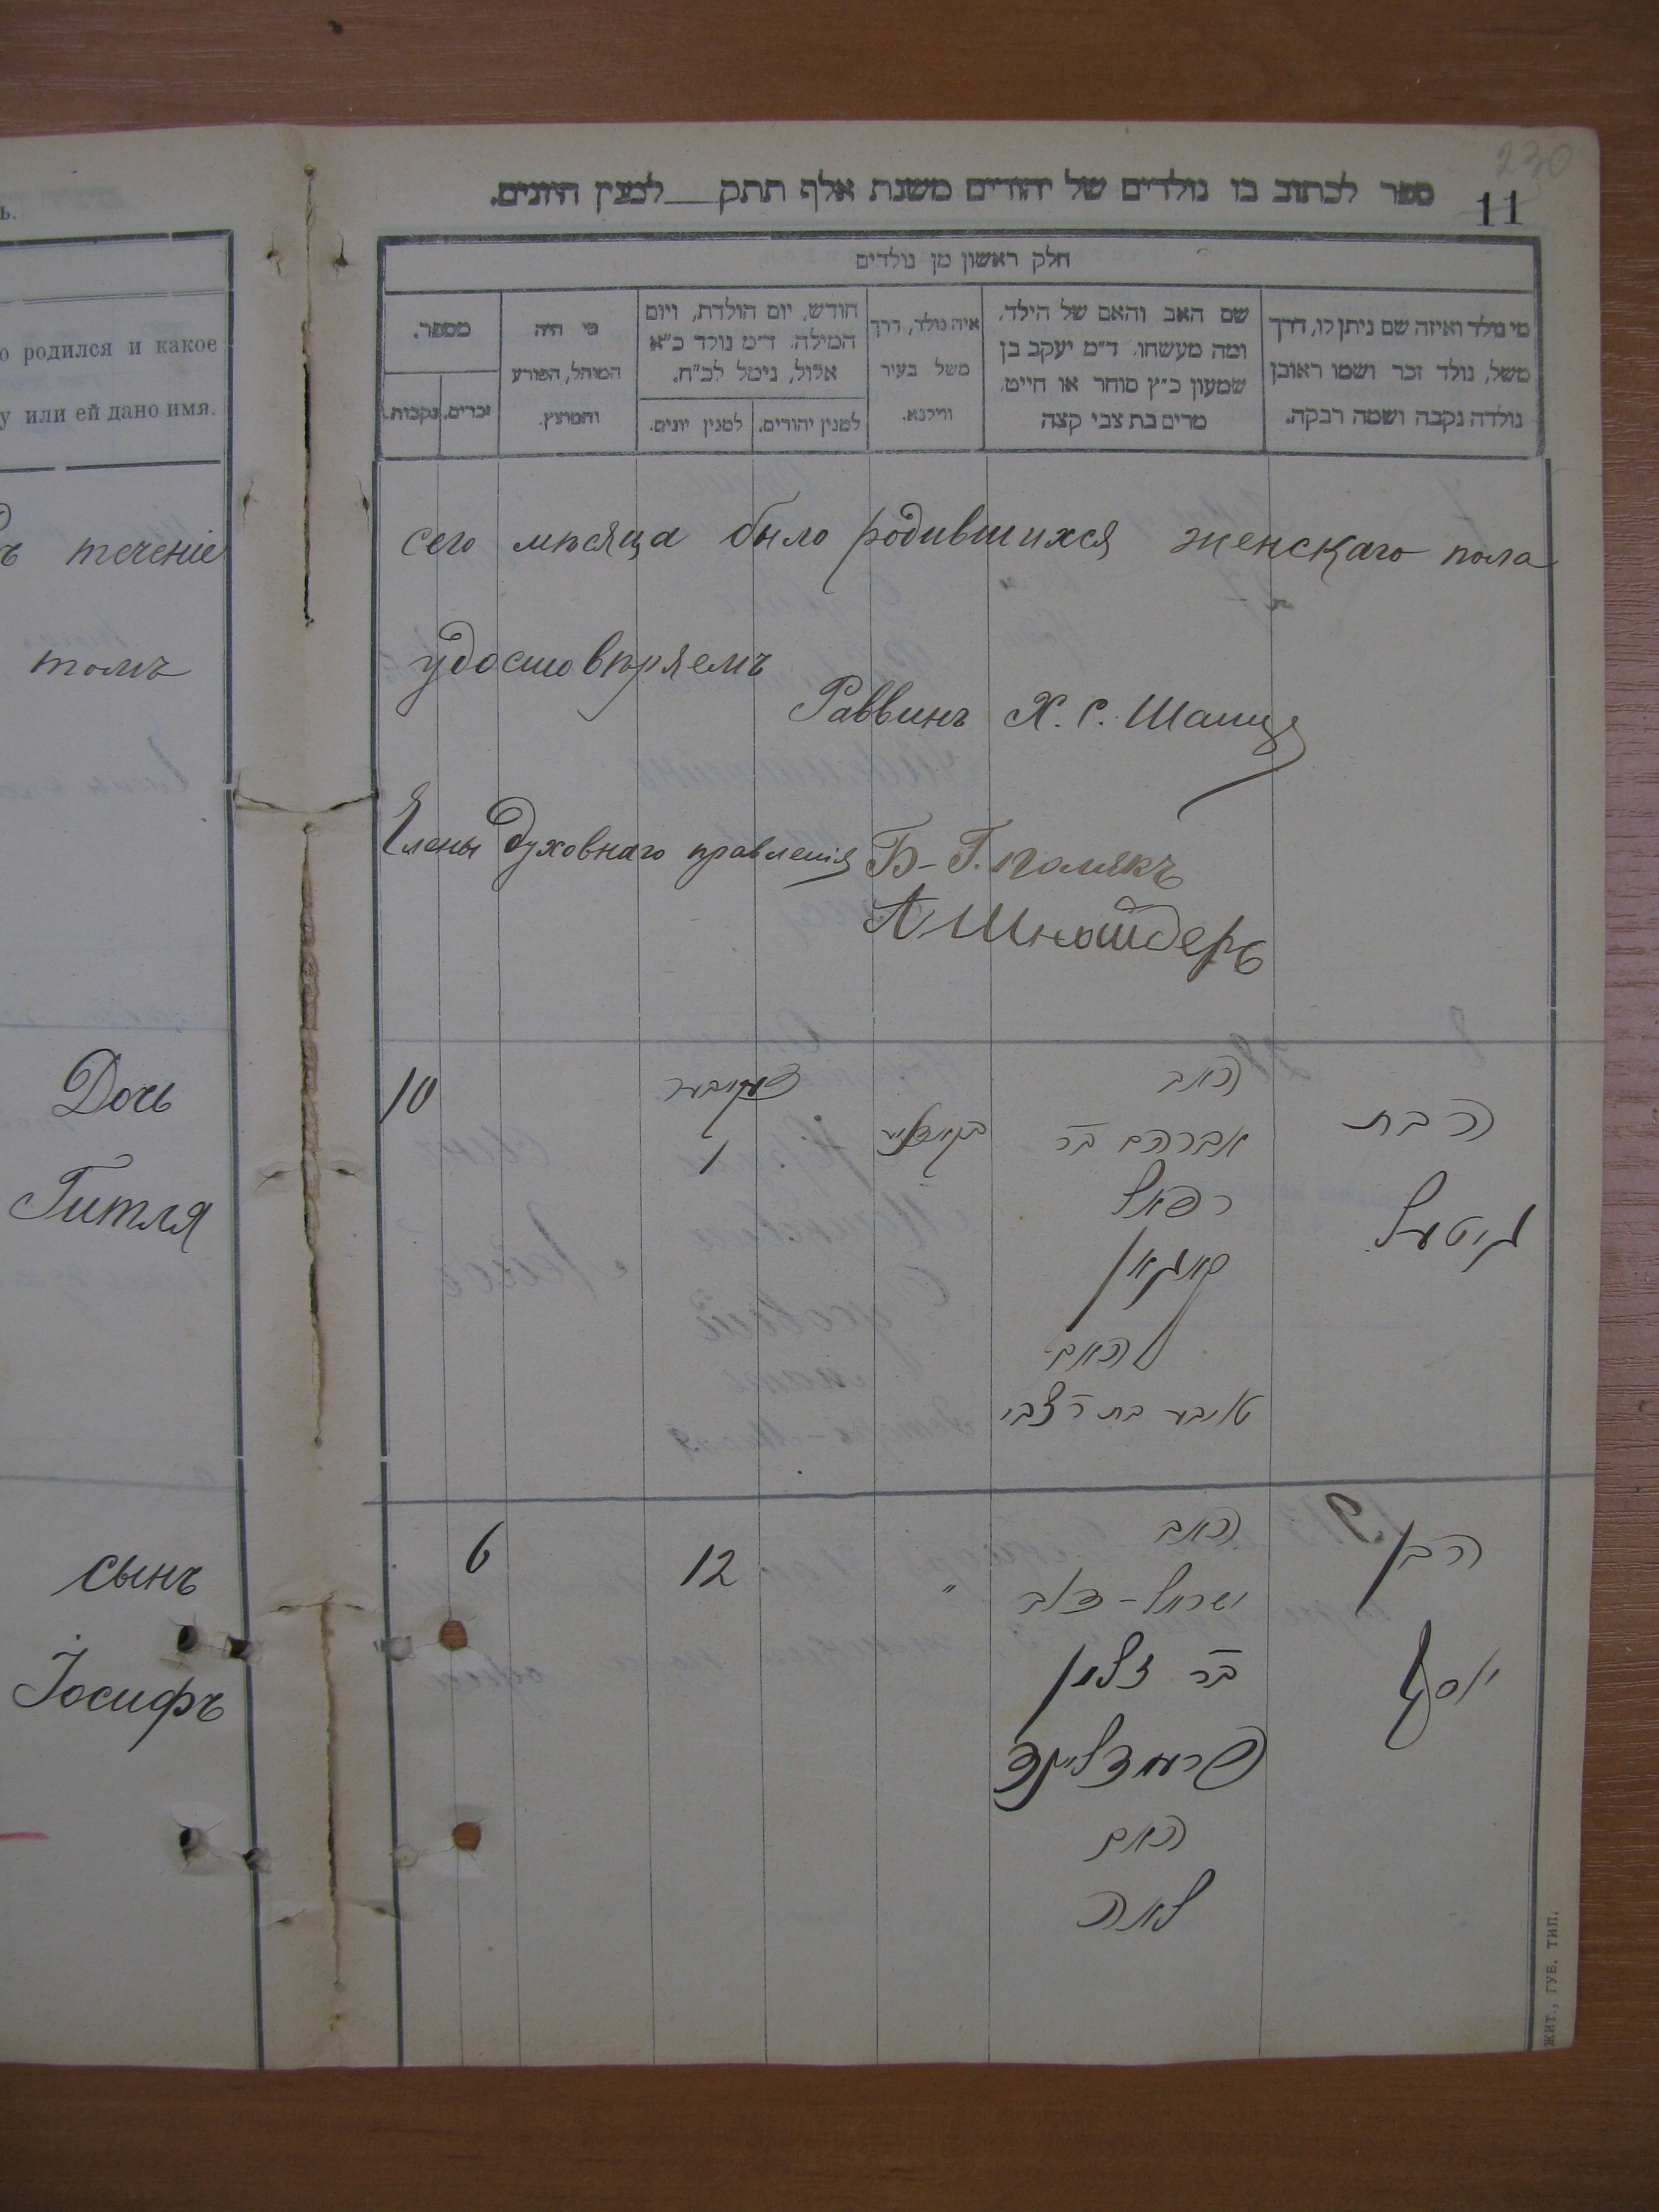 230
11
ספר לכתוב בו נולדים של יהודים משנת אלף תתק למנין היונים.
חלק ראשון מן נולדים
מי נולד ואיזה שם ניתן לו, דרך
משל, נולד זכר ושמו ראובן
נולדה נקבה ושמה רבקה.
שם האב והאם של הילד,
ומה מעשהו. ד״מ יעקב בן
שמעון כ״ץ סוחר או חייט,
מרים בת צבי קצה
איה נולד, דרך
משל בעיר
ווילנא.
חודש, יום הולדת, ויום
המילה. ד״מ נולד כ״א
אלול, נימל לכ״ח.
למנין יהודים.
למנין יונים.
מי היה
המוהל, הפורע
והמוצץ.
מספר.
זכרים.
נקבות.
ь.
о родился и какое
у или ей дано имя.
ъ теченіе
сего мѣсяца было родившихся женскаго пола
томъ
удостовѣряемъ
Раввинъ Х. С.
Члены Духовнаго правленія Б-Г. Полякъ
А Шнайдеръ
Дочь
Гитля
10
1
האב
אברהם בר
רפאל
קאגאן
האם
טויבע בת ר צבי
הבת
גיטעל
сынъ
Іосифъ
6
12
"
האב
ישראל-
בר זלמן
האם
לאה
הבן
יוסף
ЖИТ., ГУБ. ТИП.